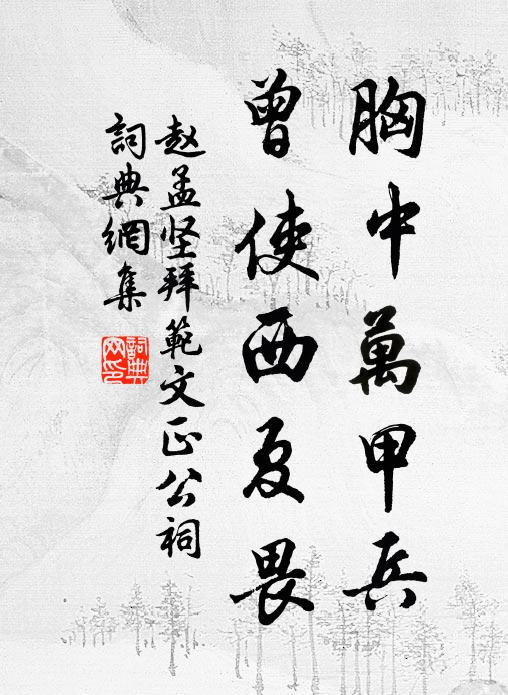 胸中萬甲兵
曾使西夏畏
赵孟坚拜範文正公祠
詞典網集
詞典网印